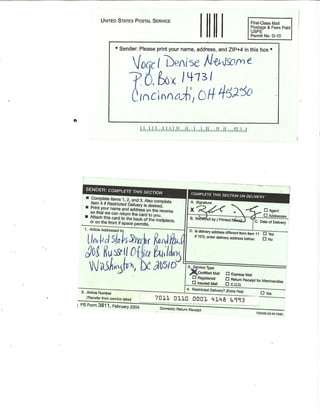 UNITED STATES POSTAL SERVICE
First-Class Mail
Postage & Fees Paid
USPS
Permit No. G-10
• Sender: Please print your name, address, and ZIP+4 in this box •
Vogel Denise Newsome
P.O. Box 14731
Cincinnati, OH 45250
SENDER: COMPLETE THIS SECTION
■ Complete items 1, 2, and 3. Also complete
item 4 if Restricted Delivery is desired.
■ Print your name and address on the reverse
so that we can return the card to you.
■ Attach this card to the back of the mailpiece,
or on the front if space permits.
1. Article Addressed to:
United States Senator Rand Paul
208 Russell Office Building
Washington, DC 20510
COMPLETE THIS SECTION ON DELIVERY
A. Signature
X
☐ Agent
☐ Addressee
B. Received by (Printed Name)
C. Date of Delivery
D. Is delivery address different from item 1? ☐ Yes
If YES, enter delivery address below: ☐ No
3. Service Type
Certified Mail ☐ Express Mail
☐ Registered ☐ Return Receipt for Merchandise
☐ Insured Mail ☐ C.O.D.
4. Restricted Delivery? (Extra Fee) ☐ Yes
2. Article Number
(Transfer from service label)
7011 0110 0001 4148 6993
PS Form 3811, February 2004
Domestic Return Receipt